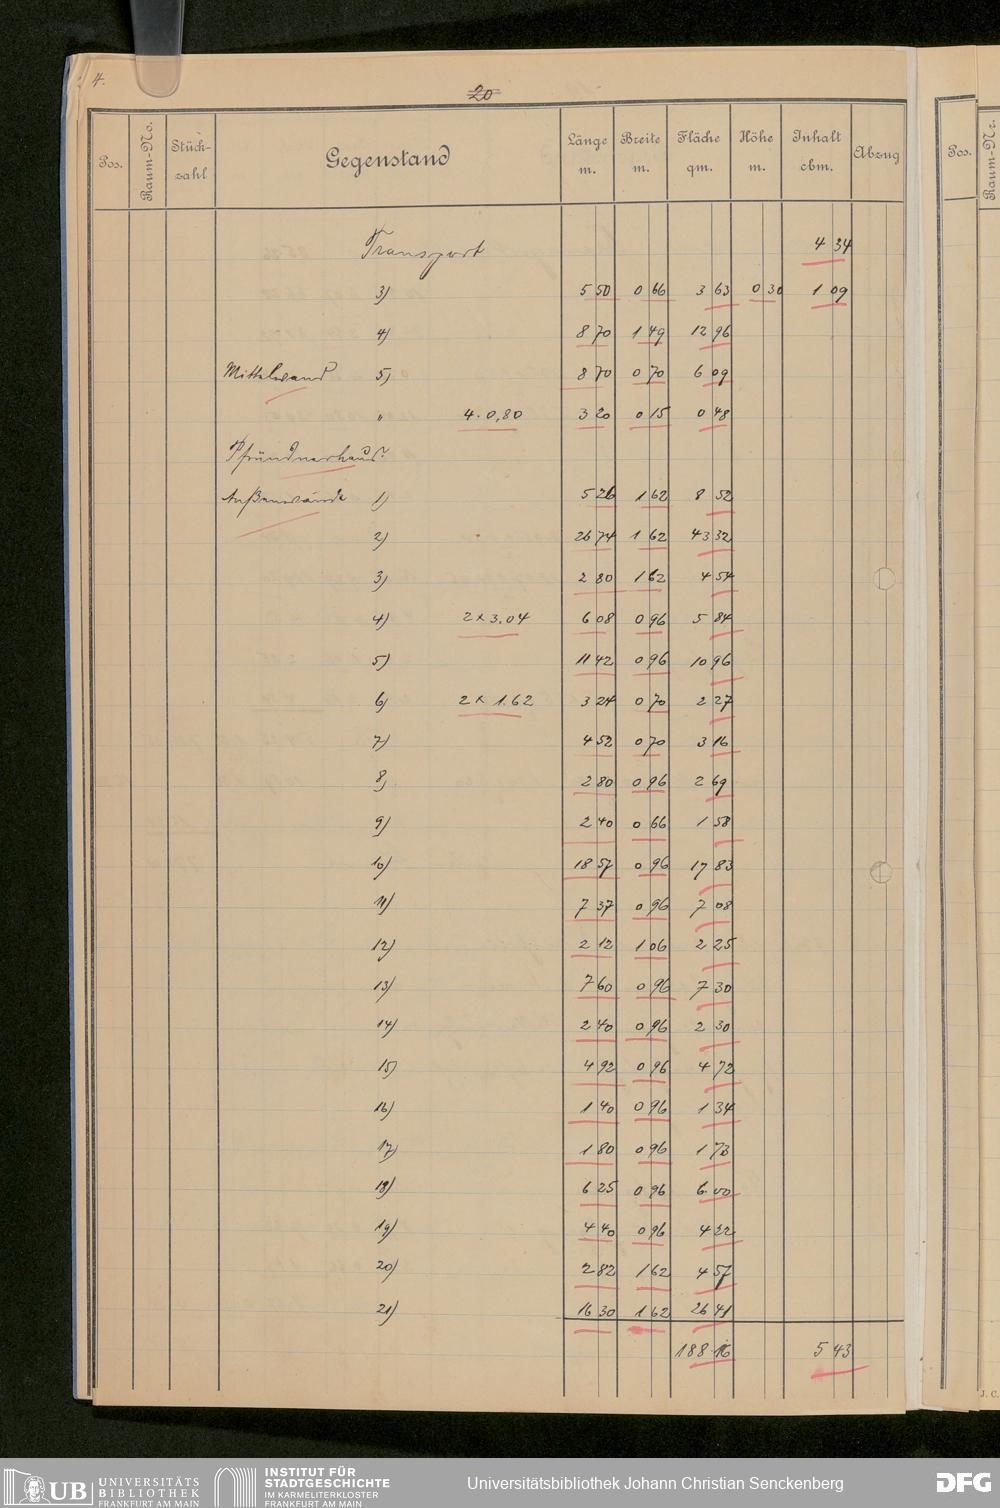 4.
20
Pos. Raum-No. Stück-zahl Gegenstand Länge m. Breite m. Fläche qm. Höhe m. Inhalt cbm. Abzug
Transport 4 34
3) 5 50 0 66 3 63 0 30 1 09
4) 8 70 1 49 12 96
Mittelwand 5) 8 70 0 70 6 09
" 4. 0,80 3 20 0 15 0 48
Pfründnerhaus:
Außenwände 1) 5 26 1 62 8 52
2) 26 74 1 62 43 32
3) 2 80 1 62 4 54
4) 2 x 3.04 6 08 0 96 5 84
5) 11 42 0 96 10 96
6) 2 x 1.62 3 24 0 70 2 27
7) 4 52 0 70 3 16
8) 2 80 0 96 2 69
9) 2 40 0 66 1 58
10) 18 57 0 96 17 83
11) 7 37 0 96 7 08
12) 2 12 1 06 2 25
13) 7 60 0 96 7 30
14) 2 40 0 96 2 30
15) 4 92 0 96 4 72
16) 1 40 0 96 1 34
17) 1 80 0 96 1 73
18) 6 25 0 96 6 00
19) 4 40 0 96 4 22
20) 2 82 1 62 4 57
21) 16 30 1 62 26 41
188 16 5 43
Pos.
Raum-Nr.
J. C.
UB UNIVERSITÄTS BIBLIOTHEK FRANKFURT AM MAIN
INSTITUT FÜR STADTGESCHICHTE IM KARMELITERKLOSTER FRANKFURT AM MAIN
Universitätsbibliothek Johann Christian Senckenberg
DFG